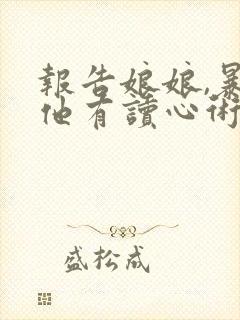 報告娘娘,暴
他有讀心術
盛松成